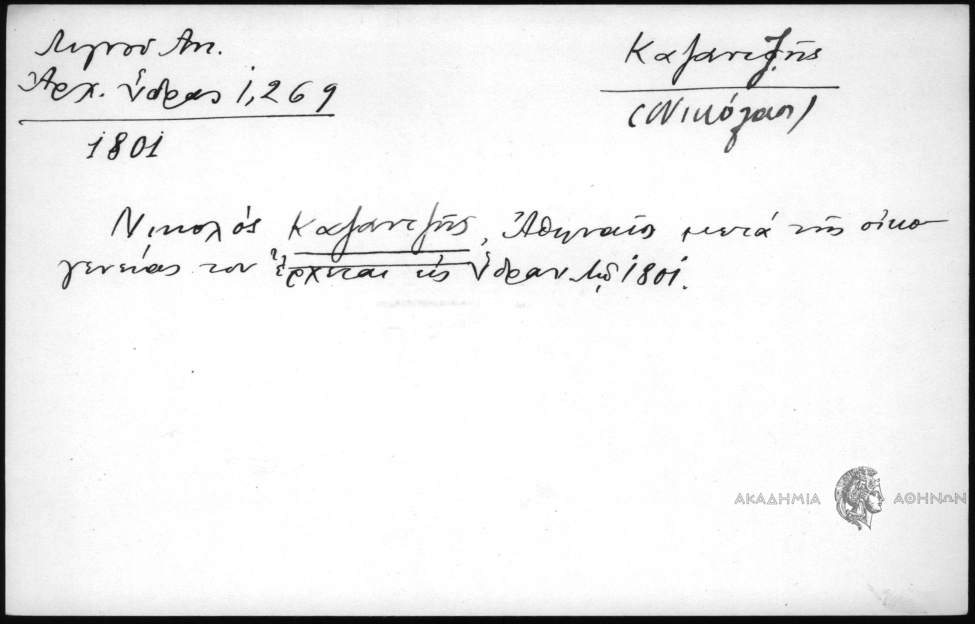 Λιγνού Αντ.
Ἀρχ. Ὕδρας 1, 269
1801
Καζαντζῆς
(Νικόλαος)
Νικολός Καζαντζῆς, Ἀθηναῖος μετά τῆς οἰκο
γενείας του ἔρχεται εἰς Ὕδραν 1801.
ΑΚΑΔΗΜΙΑ ΑΘΗΝΩΝ